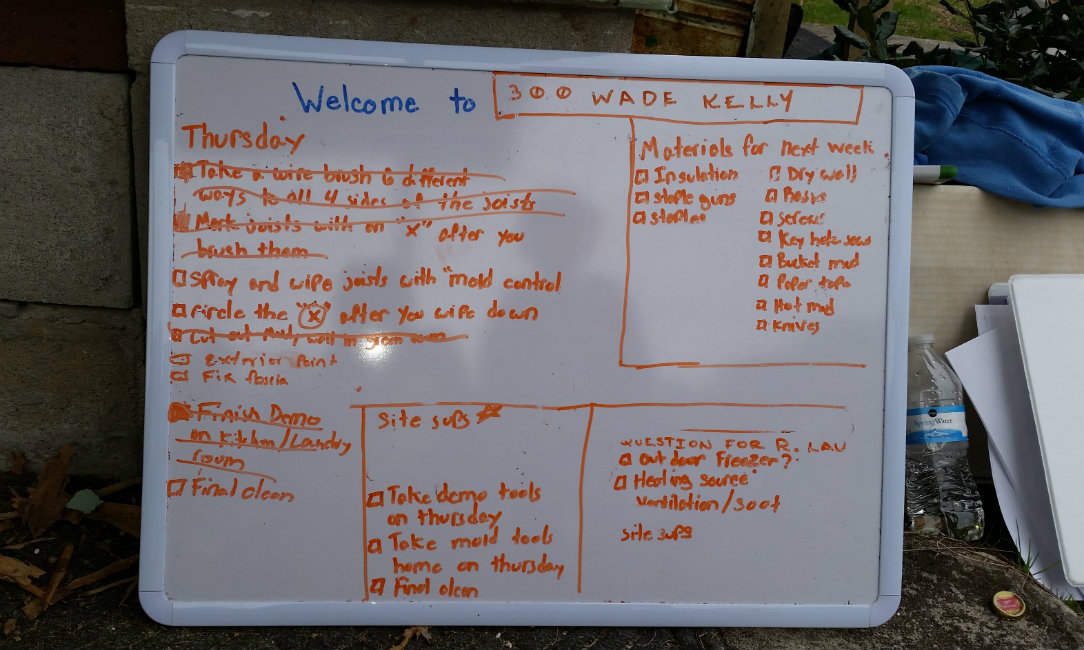 Welcome to
300 WADE KELLY
Thursday
Take a wire brush 6 different
ways to all 4 sides of the joists
Mark joists with an "X" after you
brush them
Spray and wipe joists with "mold control
circle the "X" after you wipe down
Cut out Moldy wall in green room
exterior Paint
Fix fascia
Finish Demo
on kitchen/Laundry
room
Final clean
Materials for next week
Insulation
staple guns
staples
Dry wall
screws
Key hole saw
Bucket mud
Paper tape
Hot mud
Knives
Site sups
Take demo tools
on thursday
Take mold tools
home on thursday
Final clean
QUESTION FOR R. LAU
Out door Freezer?
Heating source
Ventilation/Soot
site sups
Spring Water